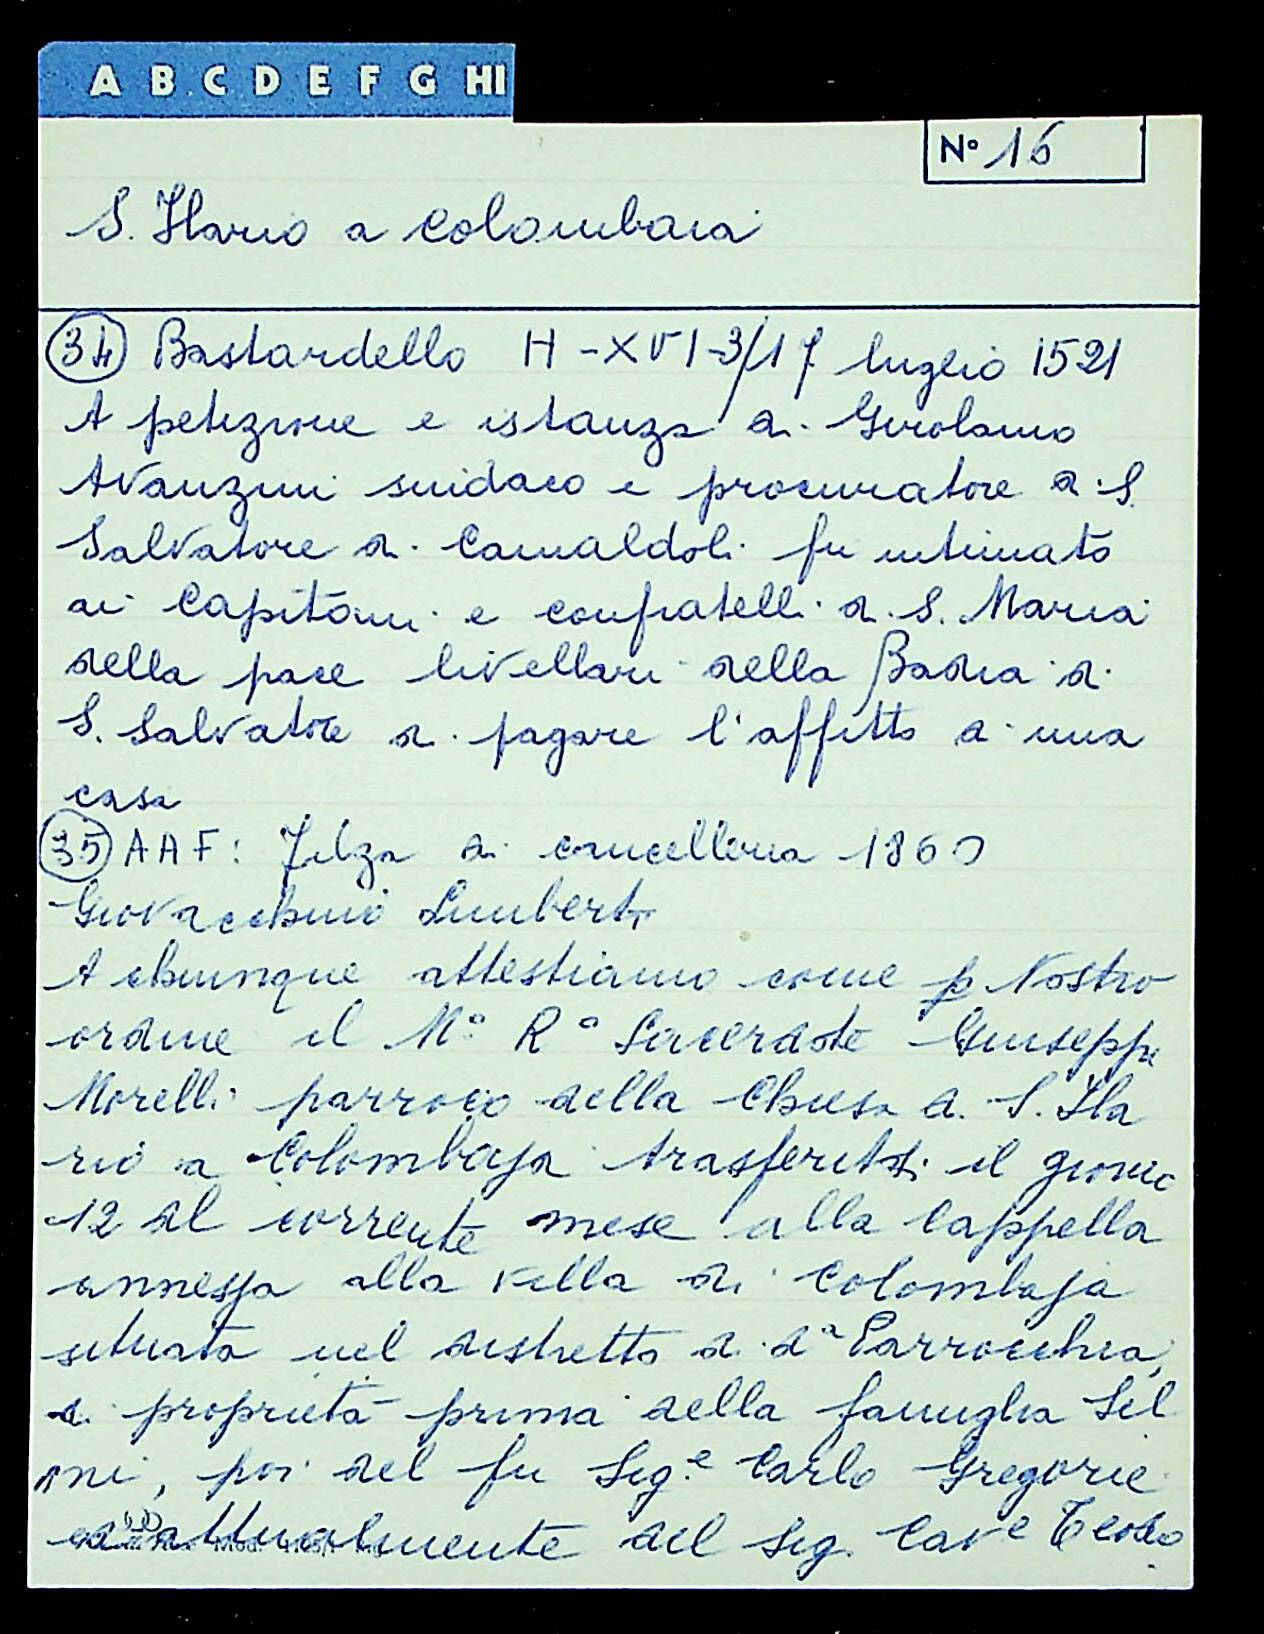 A B C D E F G HI
N° 16
S. Ilario a Colombaia
34 Bastardello H-XVI-3/17 luglio 1521
A petizione e istanza di Girolamo
Avanzini sindaco e procuratore di S.
Salvatore di Camaldoli fu intimato
ai Capitani e confratelli di S. Maria
della pace livellari della Badia di
S. Salvatore di pagare l'affitto di una
casa
35 AAF: Filza di cancelleria 1860
Giovacchino Limberti
A chiunque attestiamo come p Nostro
ordine il M° R° Sacerdote Giuseppe
Morelli parroco della Chiesa di S. Ila
rio a Colombaja trasferitosi il giorno
12 del corrente mese alla Cappella
annessa alla villa di Colombaja
situata nel distretto di da Parrocchia,
di proprietà prima della famiglia Sel
, poi del fu Sig.e Carlo Gregorie
ed attualmente del Sig. Cav.e